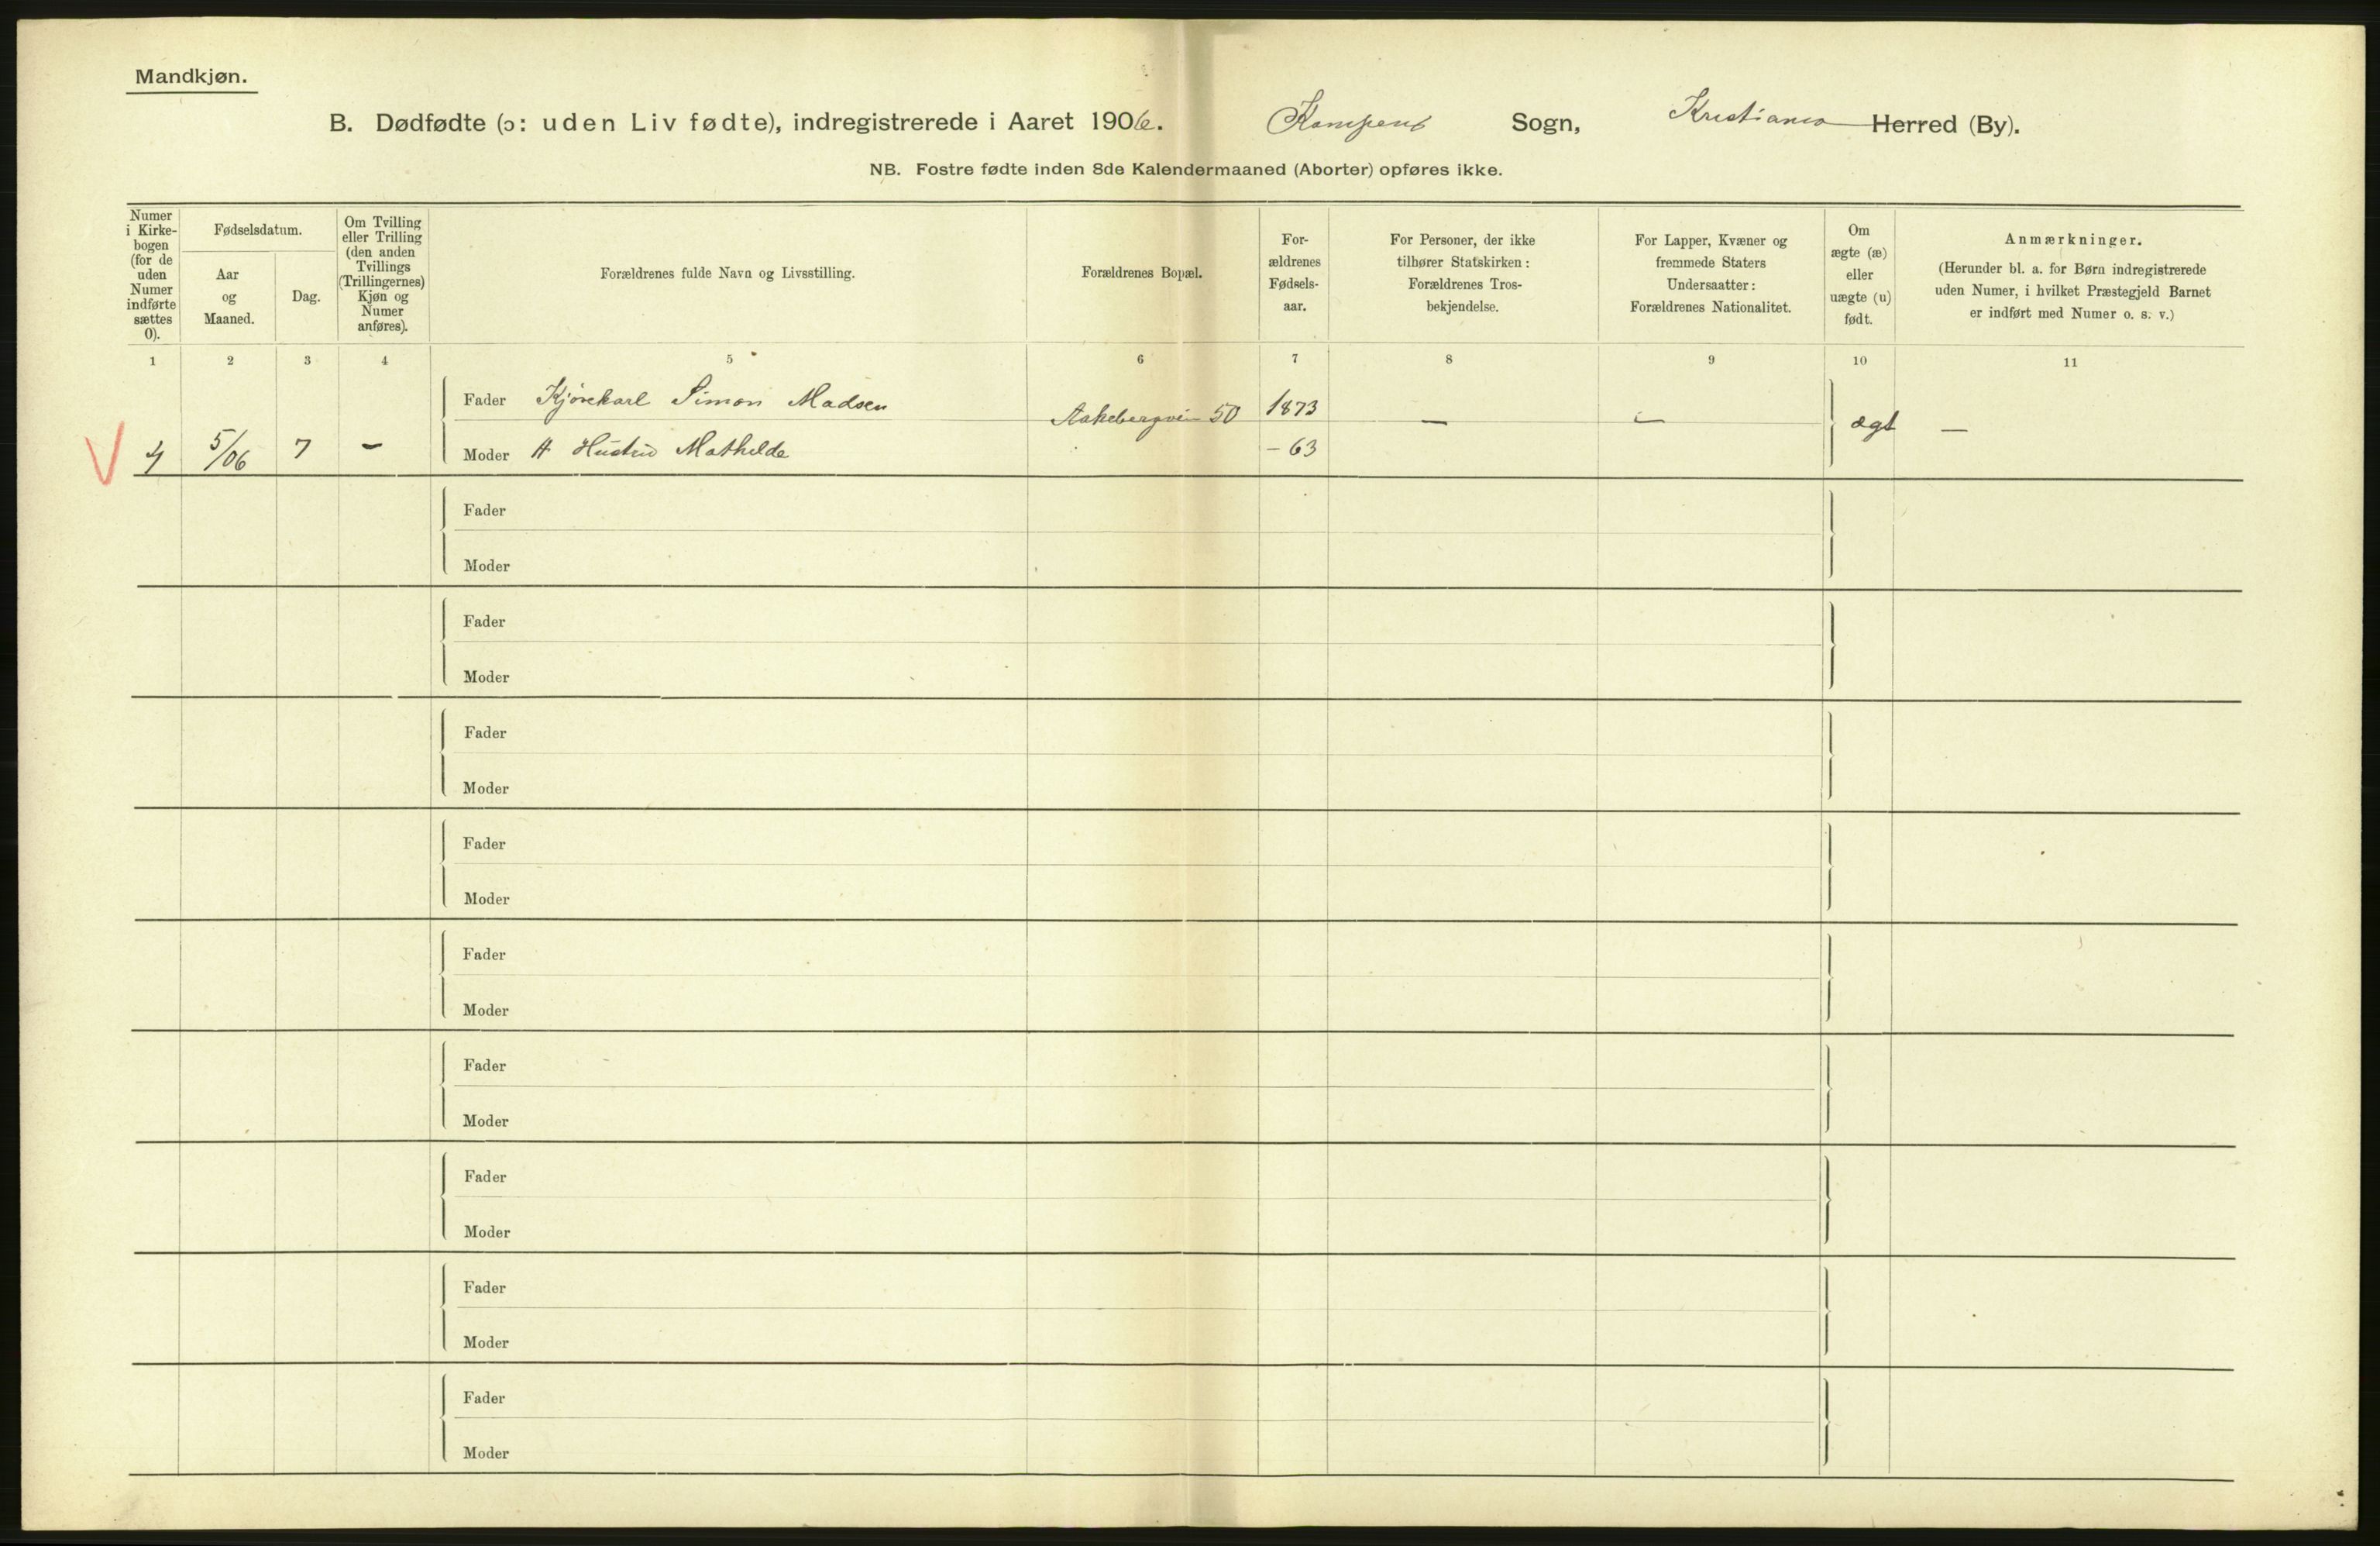 Mandkjøn.
B. Dødfødte (ɔ: uden Liv fødte), indregistrerede i Aaret 1906. Kampens Sogn, Kristiania Herred (By).
NB. Fostre fødte inden 8de Kalendermaaned (Aborter) opføres ikke.
Numer
i Kirke-
bogen
(for de
uden
Numer
indførte
sættes
0).
Fødselsdatum.
Aar
og
Maaned.
Dag.
Om Tvilling
eller Trilling
(den anden
Tvillings
(Trillingernes)
Kjøn og
Numer
anføres).
Forældrenes fulde Navn og Livsstilling.
Forældrenes Bopæl.
For-
ældrenes
Fødsels-
aar.
For Personer, der ikke
tilhører Statskirken:
Forældrenes Tros-
bekjendelse.
For Lapper, Kvæner og
fremmede Staters
Undersaatter:
Forældrenes Nationalitet.
Om
ægte (æ)
eller
uægte (u)
født.
Anmærkninger.
(Herunder bl. a. for Børn indregistrerede
uden Numer, i hvilket Præstegjeld Barnet
er indført med Numer o. s. v.)
1 2 3 4 5 6 7 8 9 10 11
Fader Kjørekarl Simon Madsen Aakebergvein 50 1873 — — ægt —
4 5/06 7 – Moder H Hustru Mathilde – 63
Fader
Moder
Fader
Moder
Fader
Moder
Fader
Moder
Fader
Moder
Fader
Moder
Fader
Moder
Fader
Moder
Fader
Moder